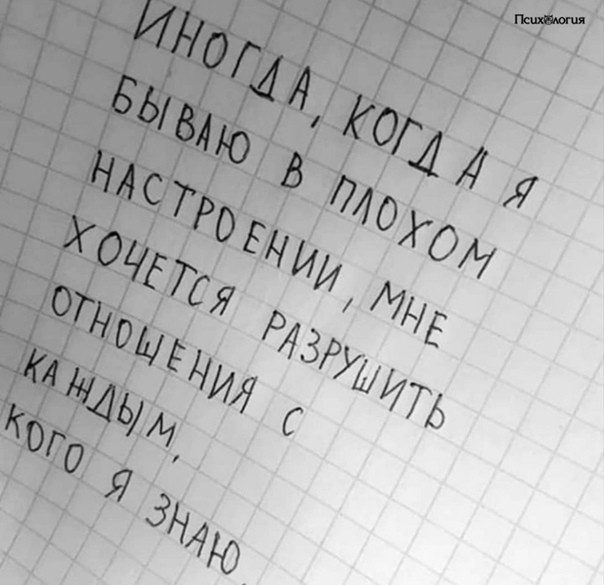 Психология
ИНОГДА, КОГДА Я
БЫВАЮ В ПЛОХОМ
НАСТРОЕНИИ, МНЕ
ХОЧЕТСЯ РАЗРУШИТЬ
ОТНОШЕНИЯ С
КАЖДЫМ,
КОГО Я ЗНАЮ.